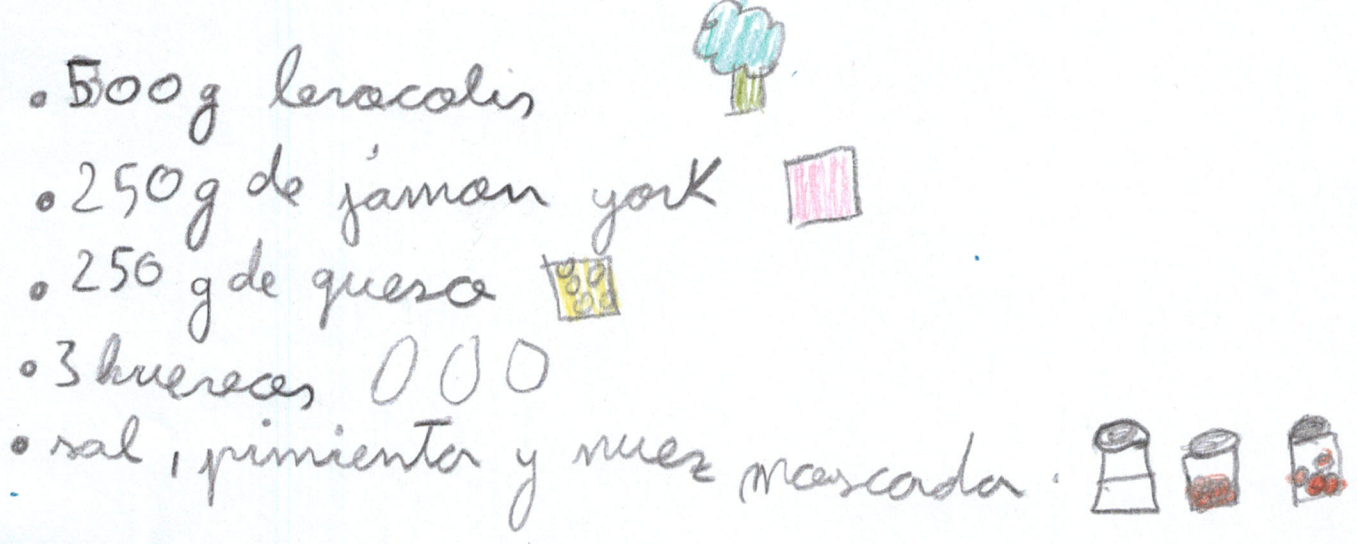 • 500g beracolis
• 250g de jámon york
• 250 g de queso
• 3 huereces
• sal, pimienta y nuez moscada.